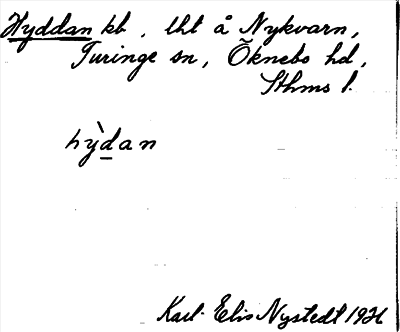 Hyddan kb, tht å Nykvarn,
Turinge sn, Öknebo hd,
Sthms l.
hỳdan
Karl-Elis Nystedt 1926